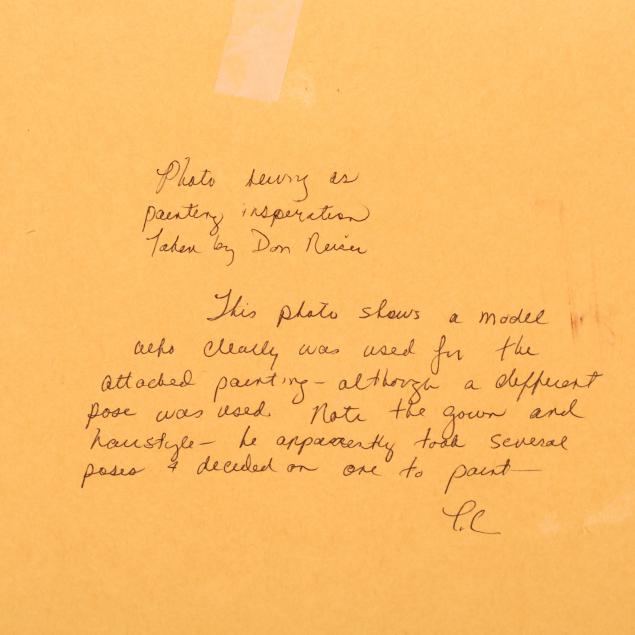 Photo serving as
painting insperation
Taken by Don
This photo shows a model
who clearly was used for the
attached painting - although a different
pose was used. Note the gown and
hairstyle - he apparently took several
poses & decided on one to paint -